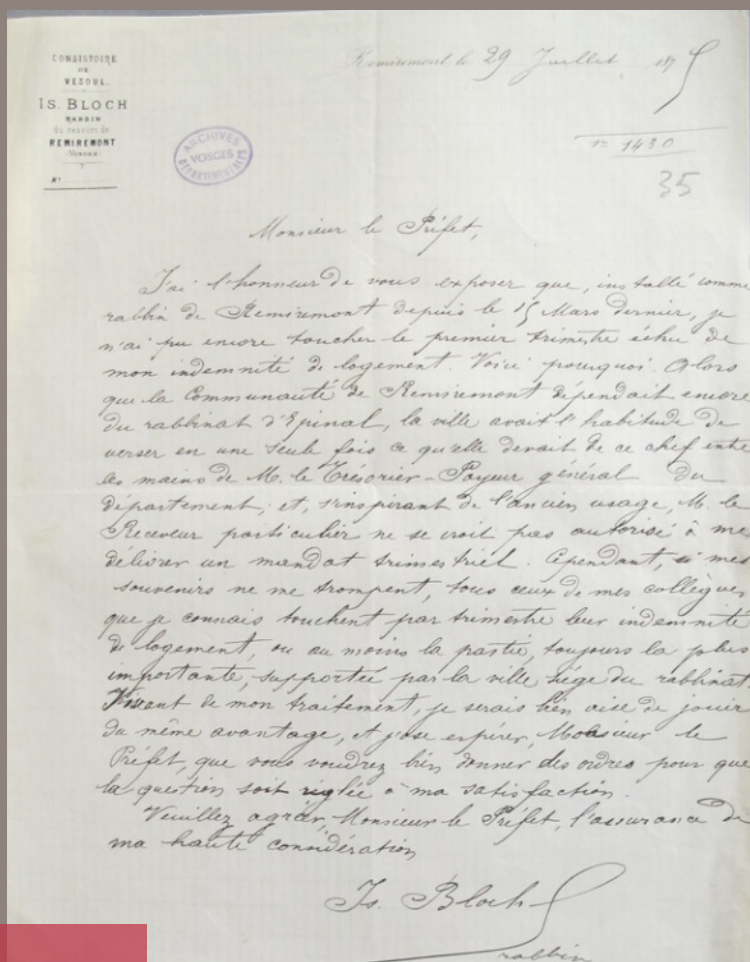 CONSISTOIRE
DE
VESOUL.
IS. BLOCH
RABBIN
du ressort de
REMIREMONT
(VOSGES)
N°
Remiremont, le 29 Juillet 1875
ARCHIVES
VOSGES
DÉPARTEMENTALES
n° 1430
35
Monsieur le Préfet,
J'ai l'honneur de vous exposer que, installé comme
rabbin de Remiremont depuis le 15 Mars dernier, je
n'ai pu encore toucher le premier trimestre échu de
mon indemnité de logement. Voici pourquoi. Alors
que la Communauté de Remiremont dépendait encore
du rabbinat d'Epinal, la ville avait l'habitude de
verser en une seule fois ce qu'elle devait de ce chef entre
les mains de M. le Trésorier-Payeur général du
département; et, s'inspirant de l'ancien usage, M. le
Receveur particulier ne se croit pas autorisé à me
délivrer un mandat trimestriel. Cependant, si mes
souvenirs ne me trompent, tous ceux de mes collègues
que je connais touchent par trimestre leur indemnité
de logement, ou au moins la partie, toujours la plus
importante, supportée par la ville siège du rabbinat
Vivant de mon traitement, je serais bien aise de jouir
du même avantage, et j'ose espérer, Monsieur le
Préfet, que vous voudrez bien donner des ordres pour que
la question soit réglée à ma satisfaction.
Veuillez agréer, Monsieur le Préfet, l'assurance de
ma haute considération
Is. Bloch
rabbin